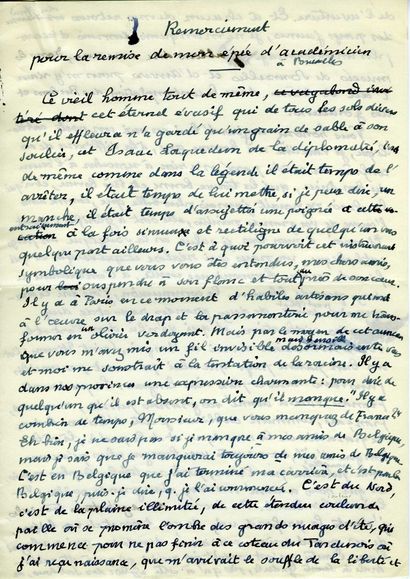 Remerciement
pour la remise de mon épée d'académicien
à Bruxelles
Ce vieil homme tout de même, ce vagabond
cet éternel évasif qui de tous les sols divers
qu'il effleura n'a gardé qu'un grain de sable à son
soulier, cet Isaac Laquedem de la diplomatie, tout
de même comme dans la légende il était temps de l'
arrêter, il était temps de lui mettre, si je puis dire, un
manche, il était temps d'assujettir une poignée à cette
à la fois sinueux et rectiligne de quelqu'un vers
quelque part ailleurs. C'est à quoi pourvoit cet instrument
symbolique que vous vous êtes entendus, mes chers amis,
pour suspendre à son flanc et tout près de son cœur.
Il y a à Paris en ce moment d'habiles artisans qui sont
à l'œuvre sur le drap et la passementerie pour me trans-
former en un olivier verdoyant. Mais par le moyen de cet
que vous m'avez mis un fil invisible désormais entre vous
et moi me soustrait à la tentation de la racine. Il y a
dans nos provinces une expression charmante : pour dire de
quelqu'un qu'il est absent, on dit qu'il manque. "Il y a
combien de temps, Monsieur, que vous manquez de France ?"
Eh bien, je ne sais pas si je manque à mes amis de Belgique,
mais je sais que je manquerai toujours de mes amis de Belgique.
C'est en Belgique que j'ai terminé ma carrière, et c'est par la
Belgique, puis-je dire, q. je l'ai commencée. C'est du Nord,
c'est de la plaine illimitée, de cette étendue couleur de
paille où se promène l'ombre des grands nuages d'été, qui
commence pour ne pas finir à ce coteau du Tardenois où
j'ai reçu naissance, que m'arrivait le souffle de la liberté et